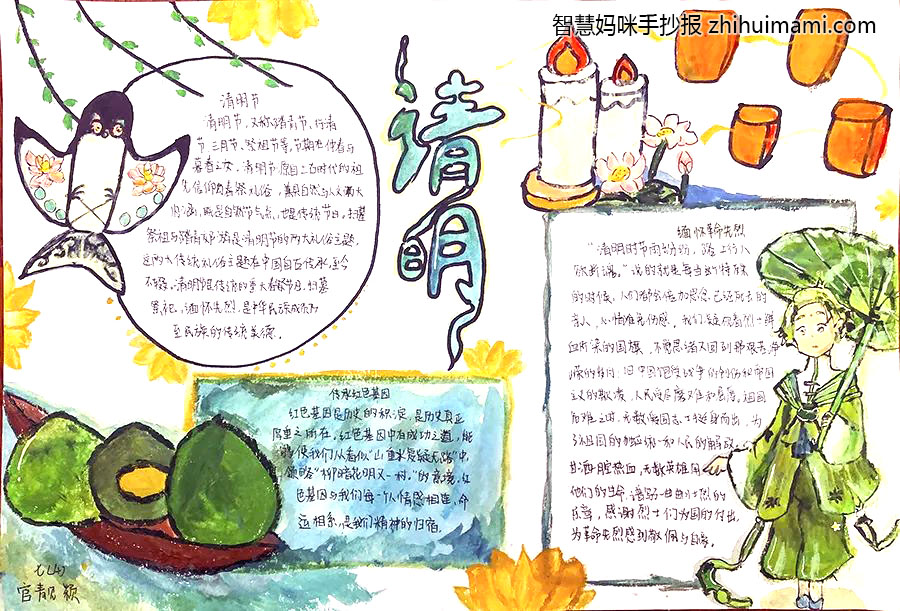 智慧妈咪手抄报 zhihuimami.com
清明
清明节
清明节,又称踏青节、行清
节、三月节、祭祖节等,节期在仲春与
暮春之交。清明节源自上古时代的祖
先信仰与春祭礼俗,兼具自然与人文两大
内涵,既是自然节气点,也是传统节日。扫墓
祭祖与踏青郊游是清明节的两大礼俗主题,
这两大传统礼俗主题在中国自古传承,至今
不辍。清明节是传统的重大春祭节日,扫墓
祭祀、缅怀先烈,是中华民族成
至民族的传统美德。
传承红色基因
红色基因是历史的积淀,是历史真正
厚重之所在,红色基因中有成功之道,能
够使我们从看似“山重水复疑无路”中
领略“柳暗花明又一村。”的意境,红
色基因与我们每一个人情感相连,命
运相系,是我们精神的归宿。
缅怀革命先烈
“清明时节雨纷纷,路上行人
欲断魂。”说的就是每当到特殊
的时候,人们都会倍加思念已经死去的
亲人,心情难免伤感。我们
血所染的国旗,不觉思绪又回到
的年月。旧中国饱受战争的创伤和帝国
主义的欺凌,人民受尽磨难和屈辱,祖国
危难之时,无数仁人志士挺身而出,为
了祖国的独立和人民的解放
甘洒腔热血,无数英雄用
他们的生命,谱写一曲曲壮烈的
感谢烈士们为国的付出,
为革命先烈感到敬佩与自豪。
七(4)
官靓颖